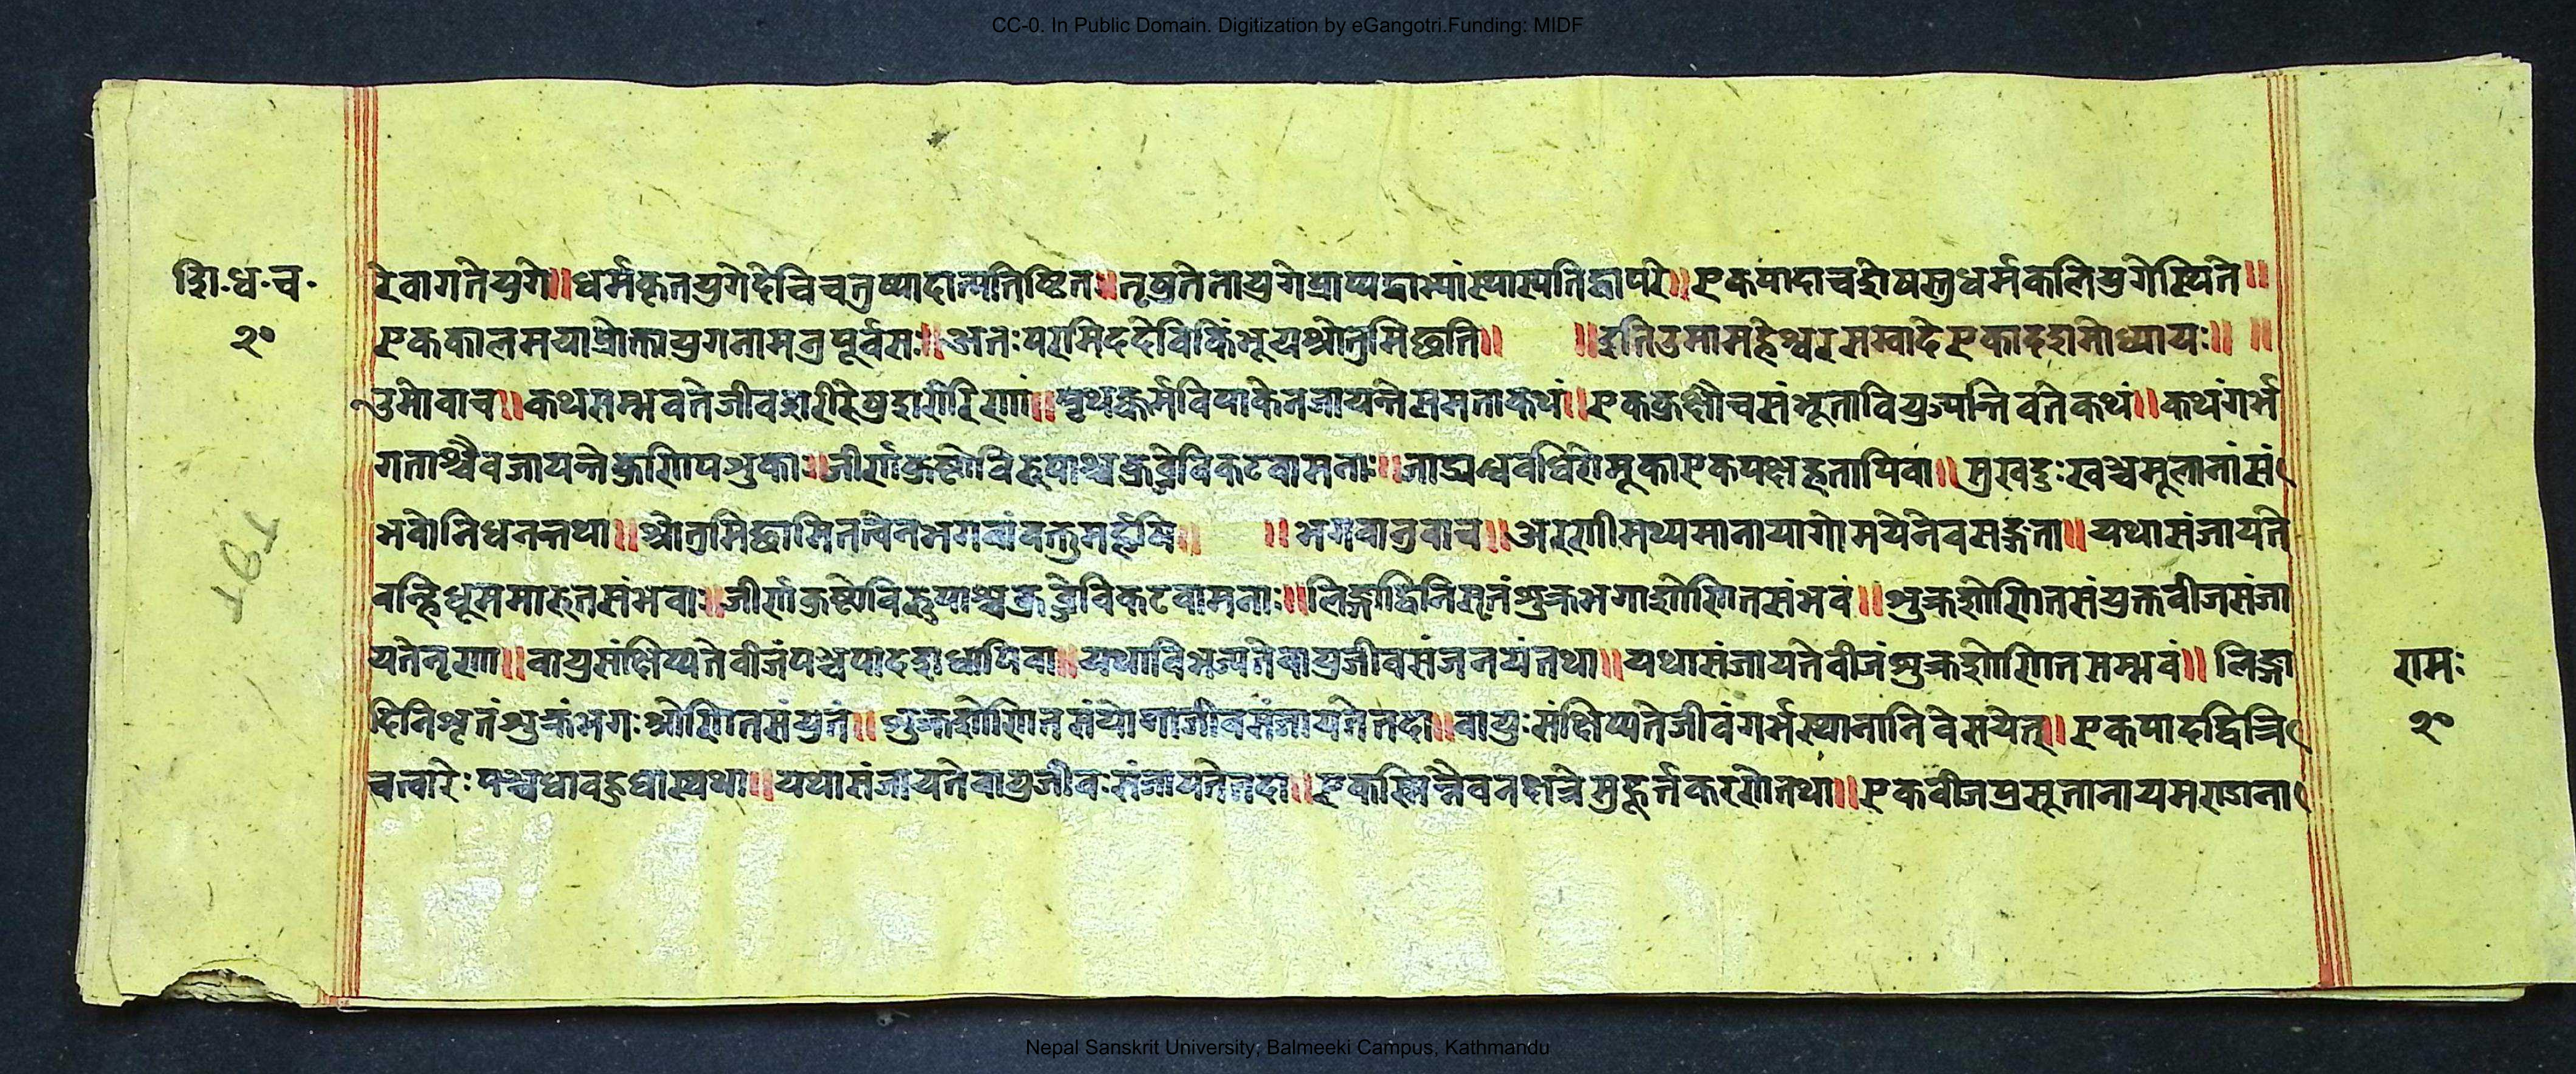 CC-0. In Public Domain. Digitization by eGangotri.Funding: MIDF
शि.ध.च.
२०
रेवागतेयुगे॥धर्मकृतयुगेदेविचतुष्पादात्प्रतिष्ठित॥तृषुत्रेतायुगेप्राप्यद्वाभ्यांस्थास्यतिद्वापरे॥एकपादाचशेषस्तुधर्मकलियुगेस्थिते॥
एककालमयाप्रोक्तायुगनामत्रपूर्वसः॥अतःपरमिददेविकिंभूयश्रोतुमिछति॥ ॥इतिउमामहेश्वरसम्वादेएकादशमोध्यायः॥ ॥
उमोवाच॥कथसम्भवतेजीवशरीरेषुशरीरिणां॥पृथक्कर्मविपाकेनजायन्तेसमताकथं॥एककुक्षौचसंभूतावियुज्यन्तिवतेकथं॥कथंगर्भ
गताश्चैवजायन्ते
भवोनिधनन्तथा॥श्रोतुमिछामितत्त्वेनभगवांवक्तुमर्हषि॥ ॥भगवानुवाच॥अरणीमथ्यमानायागोमयेनैवसङ्गता॥यथासंजायते
वन्हिधूममारुतसंभवा॥जीर्णाकुष्टोविरुपाश्चकुब्जेविकटवामनाः॥लिङ्गाद्विनिसृतंशुक्रभगाशोणितसंभवं॥शुक्रशोणितसंयुक्तवीजसंजा
यतेनृणा॥वायुसंक्षिप्यतेवीजंपञ्चपाददशधापिवा॥यथाविभज्यतेवायुजीवसंजनयंतथा॥यथासंजायतेवीजंशुक्रशोणितसम्भवं॥लिङ्गा
द्विनिशृतंशुक्रंभगःश्रोणितसंयुतं॥शुक्रशोणितसंयोगाजीवसंजायतेतदा॥वायुःसंक्षिप्यतेजीवंगर्भस्थानानिवेसयेत्॥एकपादद्वित्रि
चत्वारेःपञ्चधावहुधास्यथा॥यथासंजायतेवायुजीवःसंजायतेतदा॥एकस्मिन्नैवनक्षत्रेमुहूर्तकरणेतथा॥एकवीजप्रसूतानायमराजाना
रामः
२०
Nepal Sanskrit University, Balmeeki Campus, Kathmandu